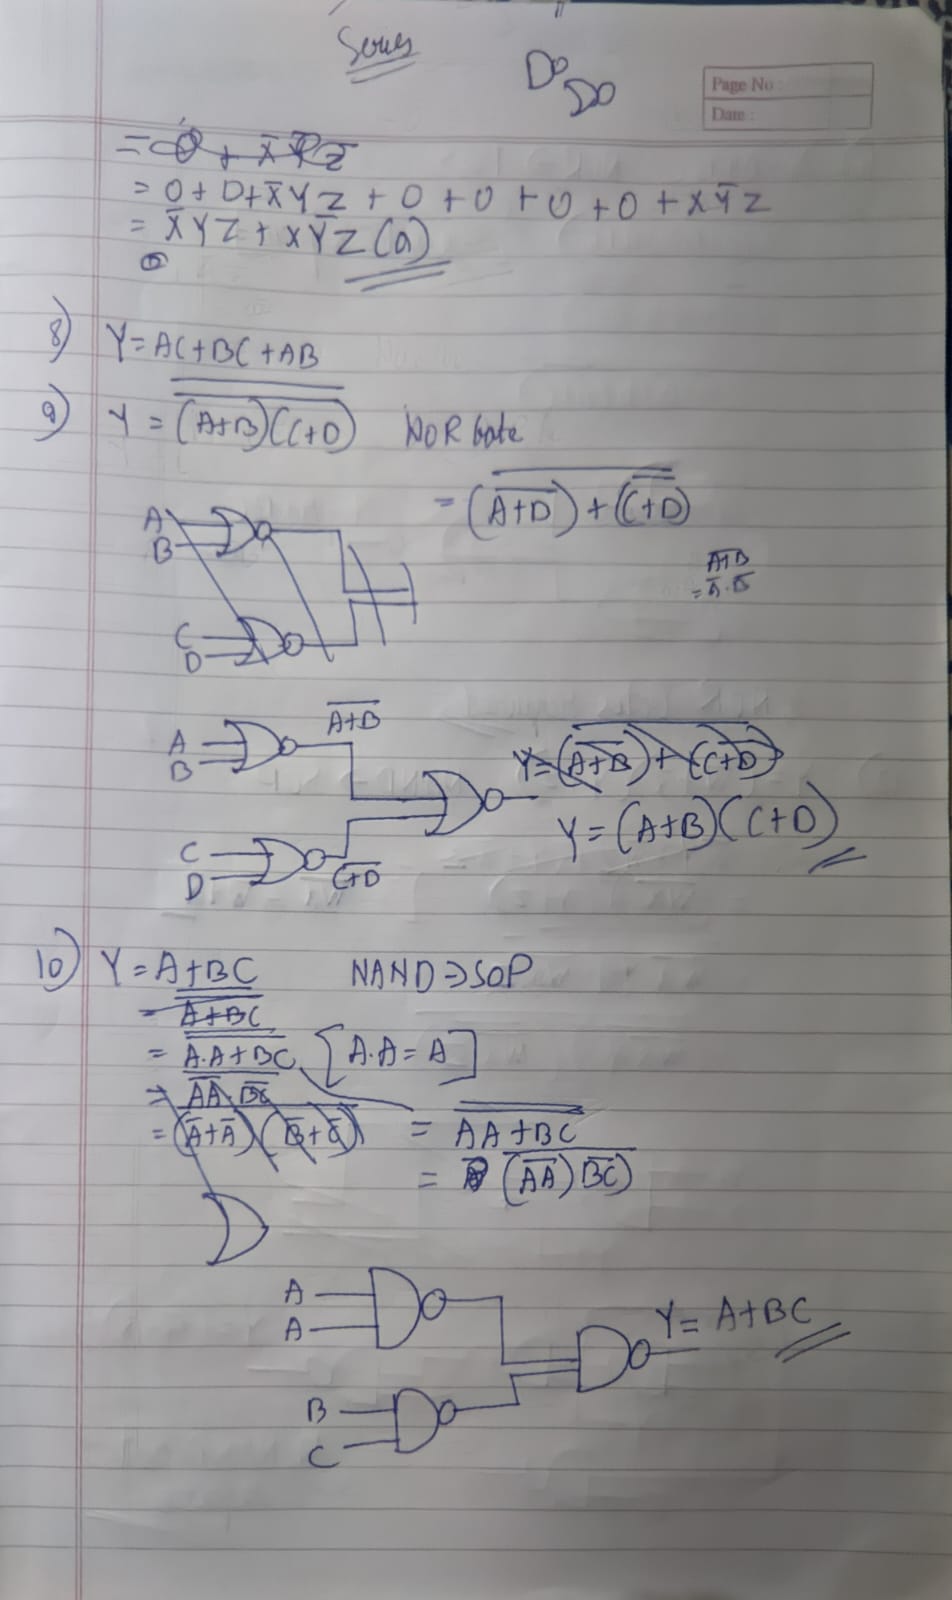 Series
Page No :
Date :
= 0 + X̅Y̅Z
= 0 + 0 + X̅YZ + 0 + 0 + 0 + 0 + XY̅Z
= X̅YZ + XY̅Z (a)
8) Y = AC + BC + AB
9) Y = (A+B)(C+D) NOR Gate
= (A+D) + (C+D)
A+B
= A̅.B̅
A
B
C
D
A+B
A
B
Y = (A+B) + (C+D)
Y = (A+B)(C+D)
C
D
C+D
10) Y = A+BC NAND ⇒ SOP
= A+BC
= A.A+BC [A.A = A]
= AA.BC
= (A̅+A̅)(B̅+C̅) = AA+BC
= (AA)(BC)
A
A
Y = A+BC
B
C